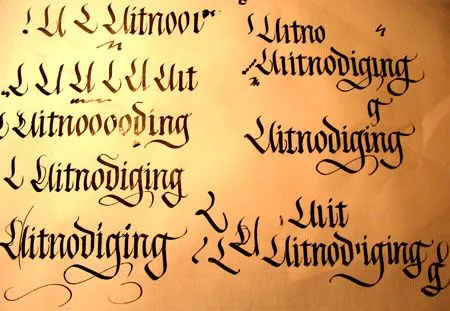 U U Uitnooi
U U U U Uit
Uitnooooding
U Uitnodiging
Uitnodiging
Uitno
Uitnodiging
g
Uitnodiging
Uit
U U Uitnodiging
g